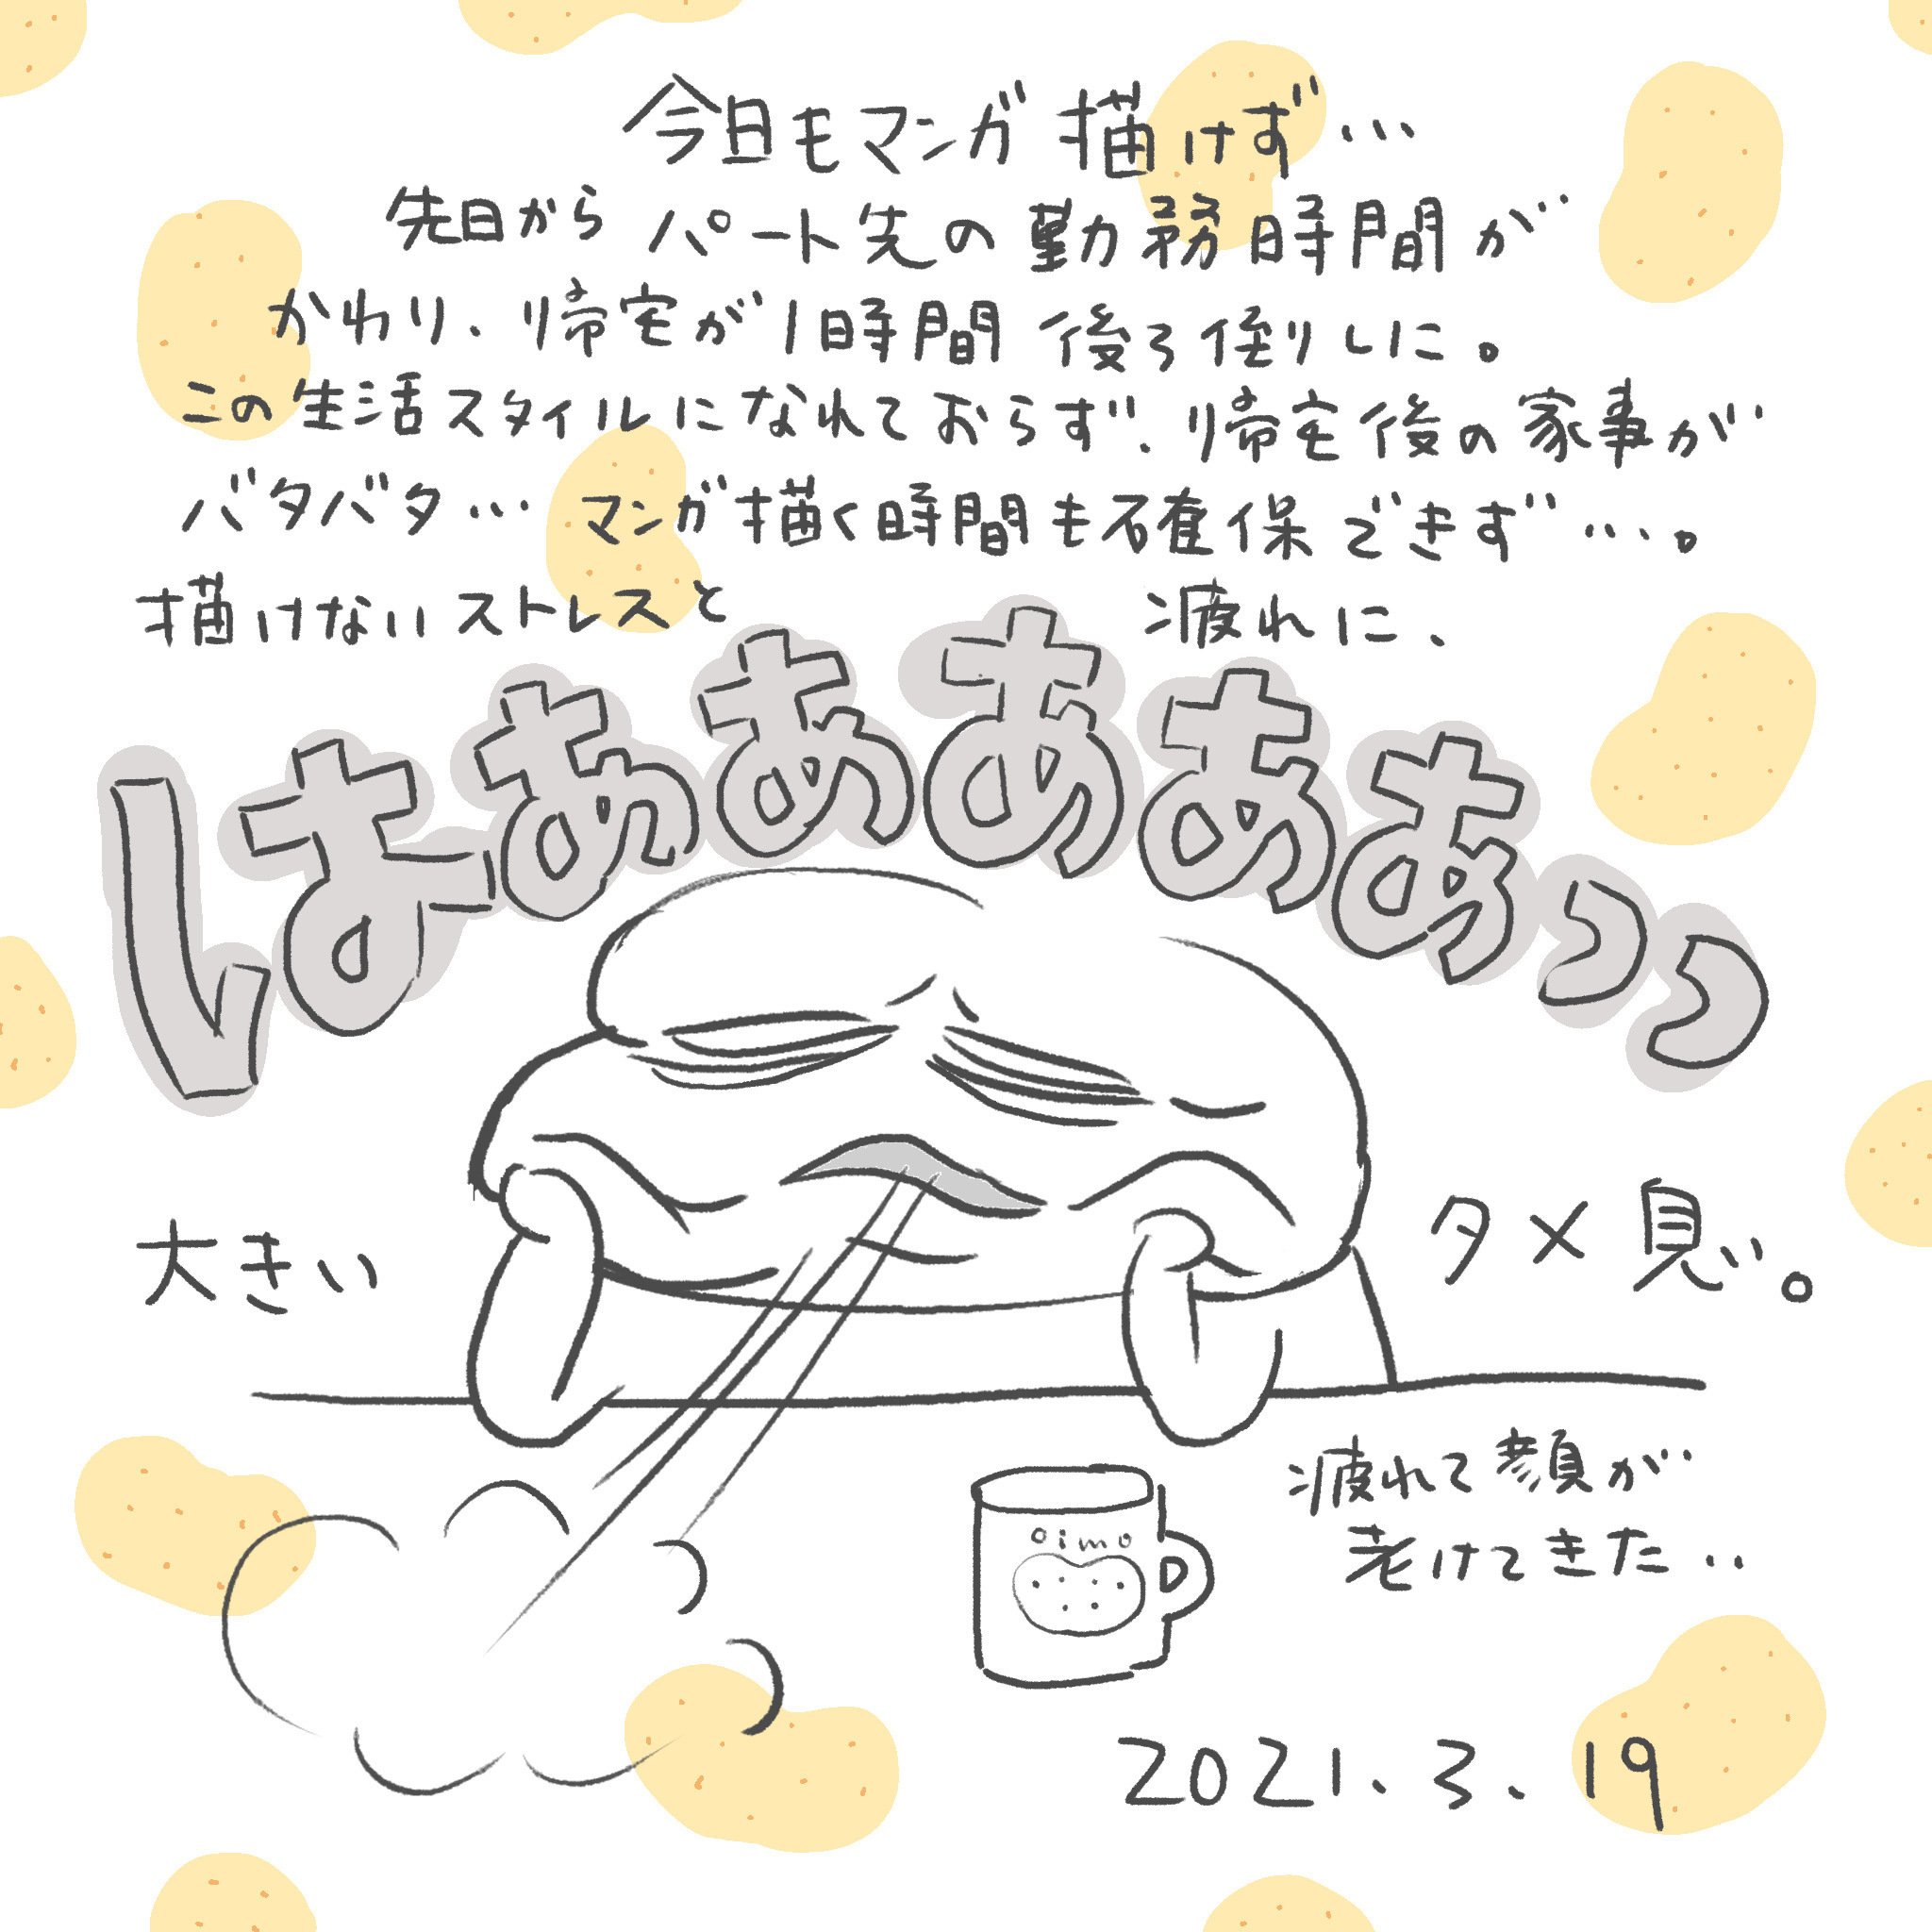 今日もマンガ描けず…
先日からパート先の勤務時間が
かわり、帰宅が1時間後ろ倒しに。
この生活スタイルになれておらず、帰宅後の家事が
バタバタ…マンガ描く時間も確保できず…。
描けないストレスと疲れに、
はぁぁぁあああっっ
大きい
タメ息。
疲れて顔が
老けてきた‥
oimo
2021.3.19